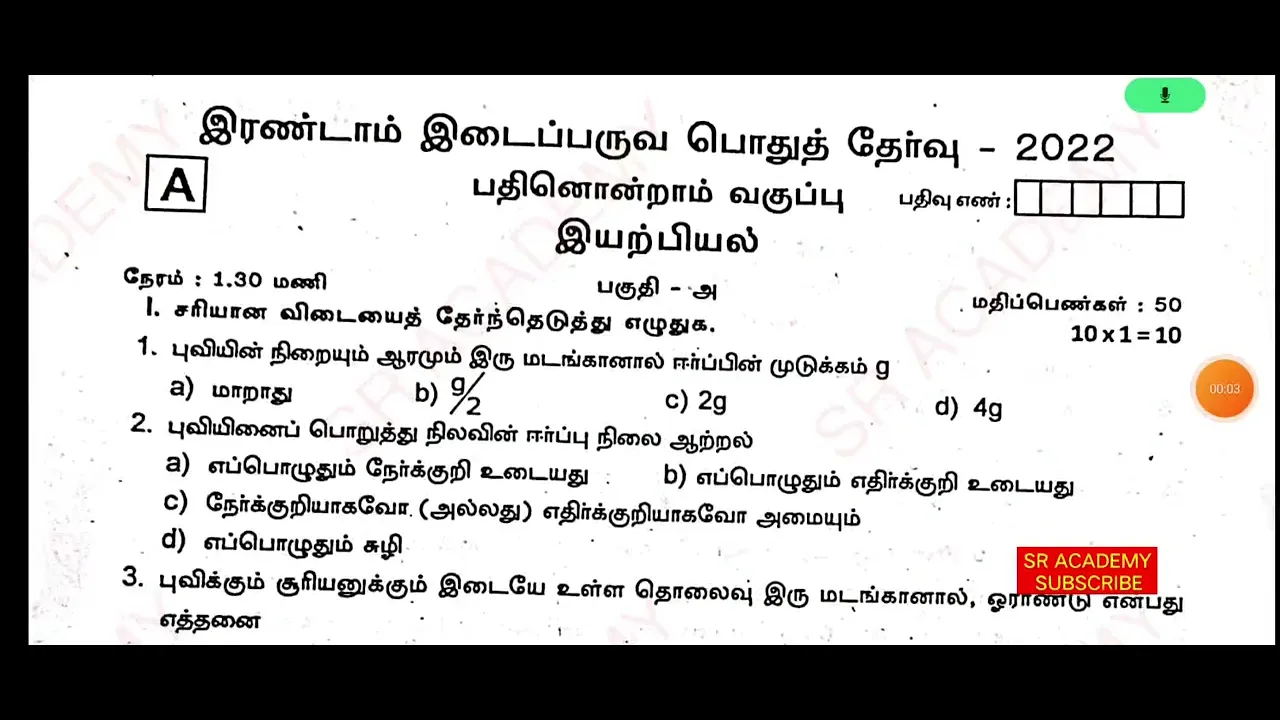 இரண்டாம் இடைப்பருவ பொதுத் தேர்வு - 2022
A
பதினொன்றாம் வகுப்பு
பதிவு எண் :
இயற்பியல்
நேரம் : 1.30 மணி
பகுதி - அ
மதிப்பெண்கள் : 50
I. சரியான விடையைத் தேர்ந்தெடுத்து எழுதுக.
10 x 1 = 10
1. புவியின் நிறையும் ஆரமும் இரு மடங்கானால் ஈர்ப்பின் முடுக்கம் g
a) மாறாது b) g/2 c) 2g d) 4g
2. புவியினைப் பொறுத்து நிலவின் ஈர்ப்பு நிலை ஆற்றல்
a) எப்பொழுதும் நேர்க்குறி உடையது b) எப்பொழுதும் எதிர்க்குறி உடையது
c) நேர்க்குறியாகவோ (அல்லது) எதிர்க்குறியாகவோ அமையும்
d) எப்பொழுதும் சுழி
3. புவிக்கும் சூரியனுக்கும் இடையே உள்ள தொலைவு இரு மடங்கானால், ஓராண்டு என்பது
எத்தனை
00:03
SR ACADEMY
SUBSCRIBE
SR ACADEMY